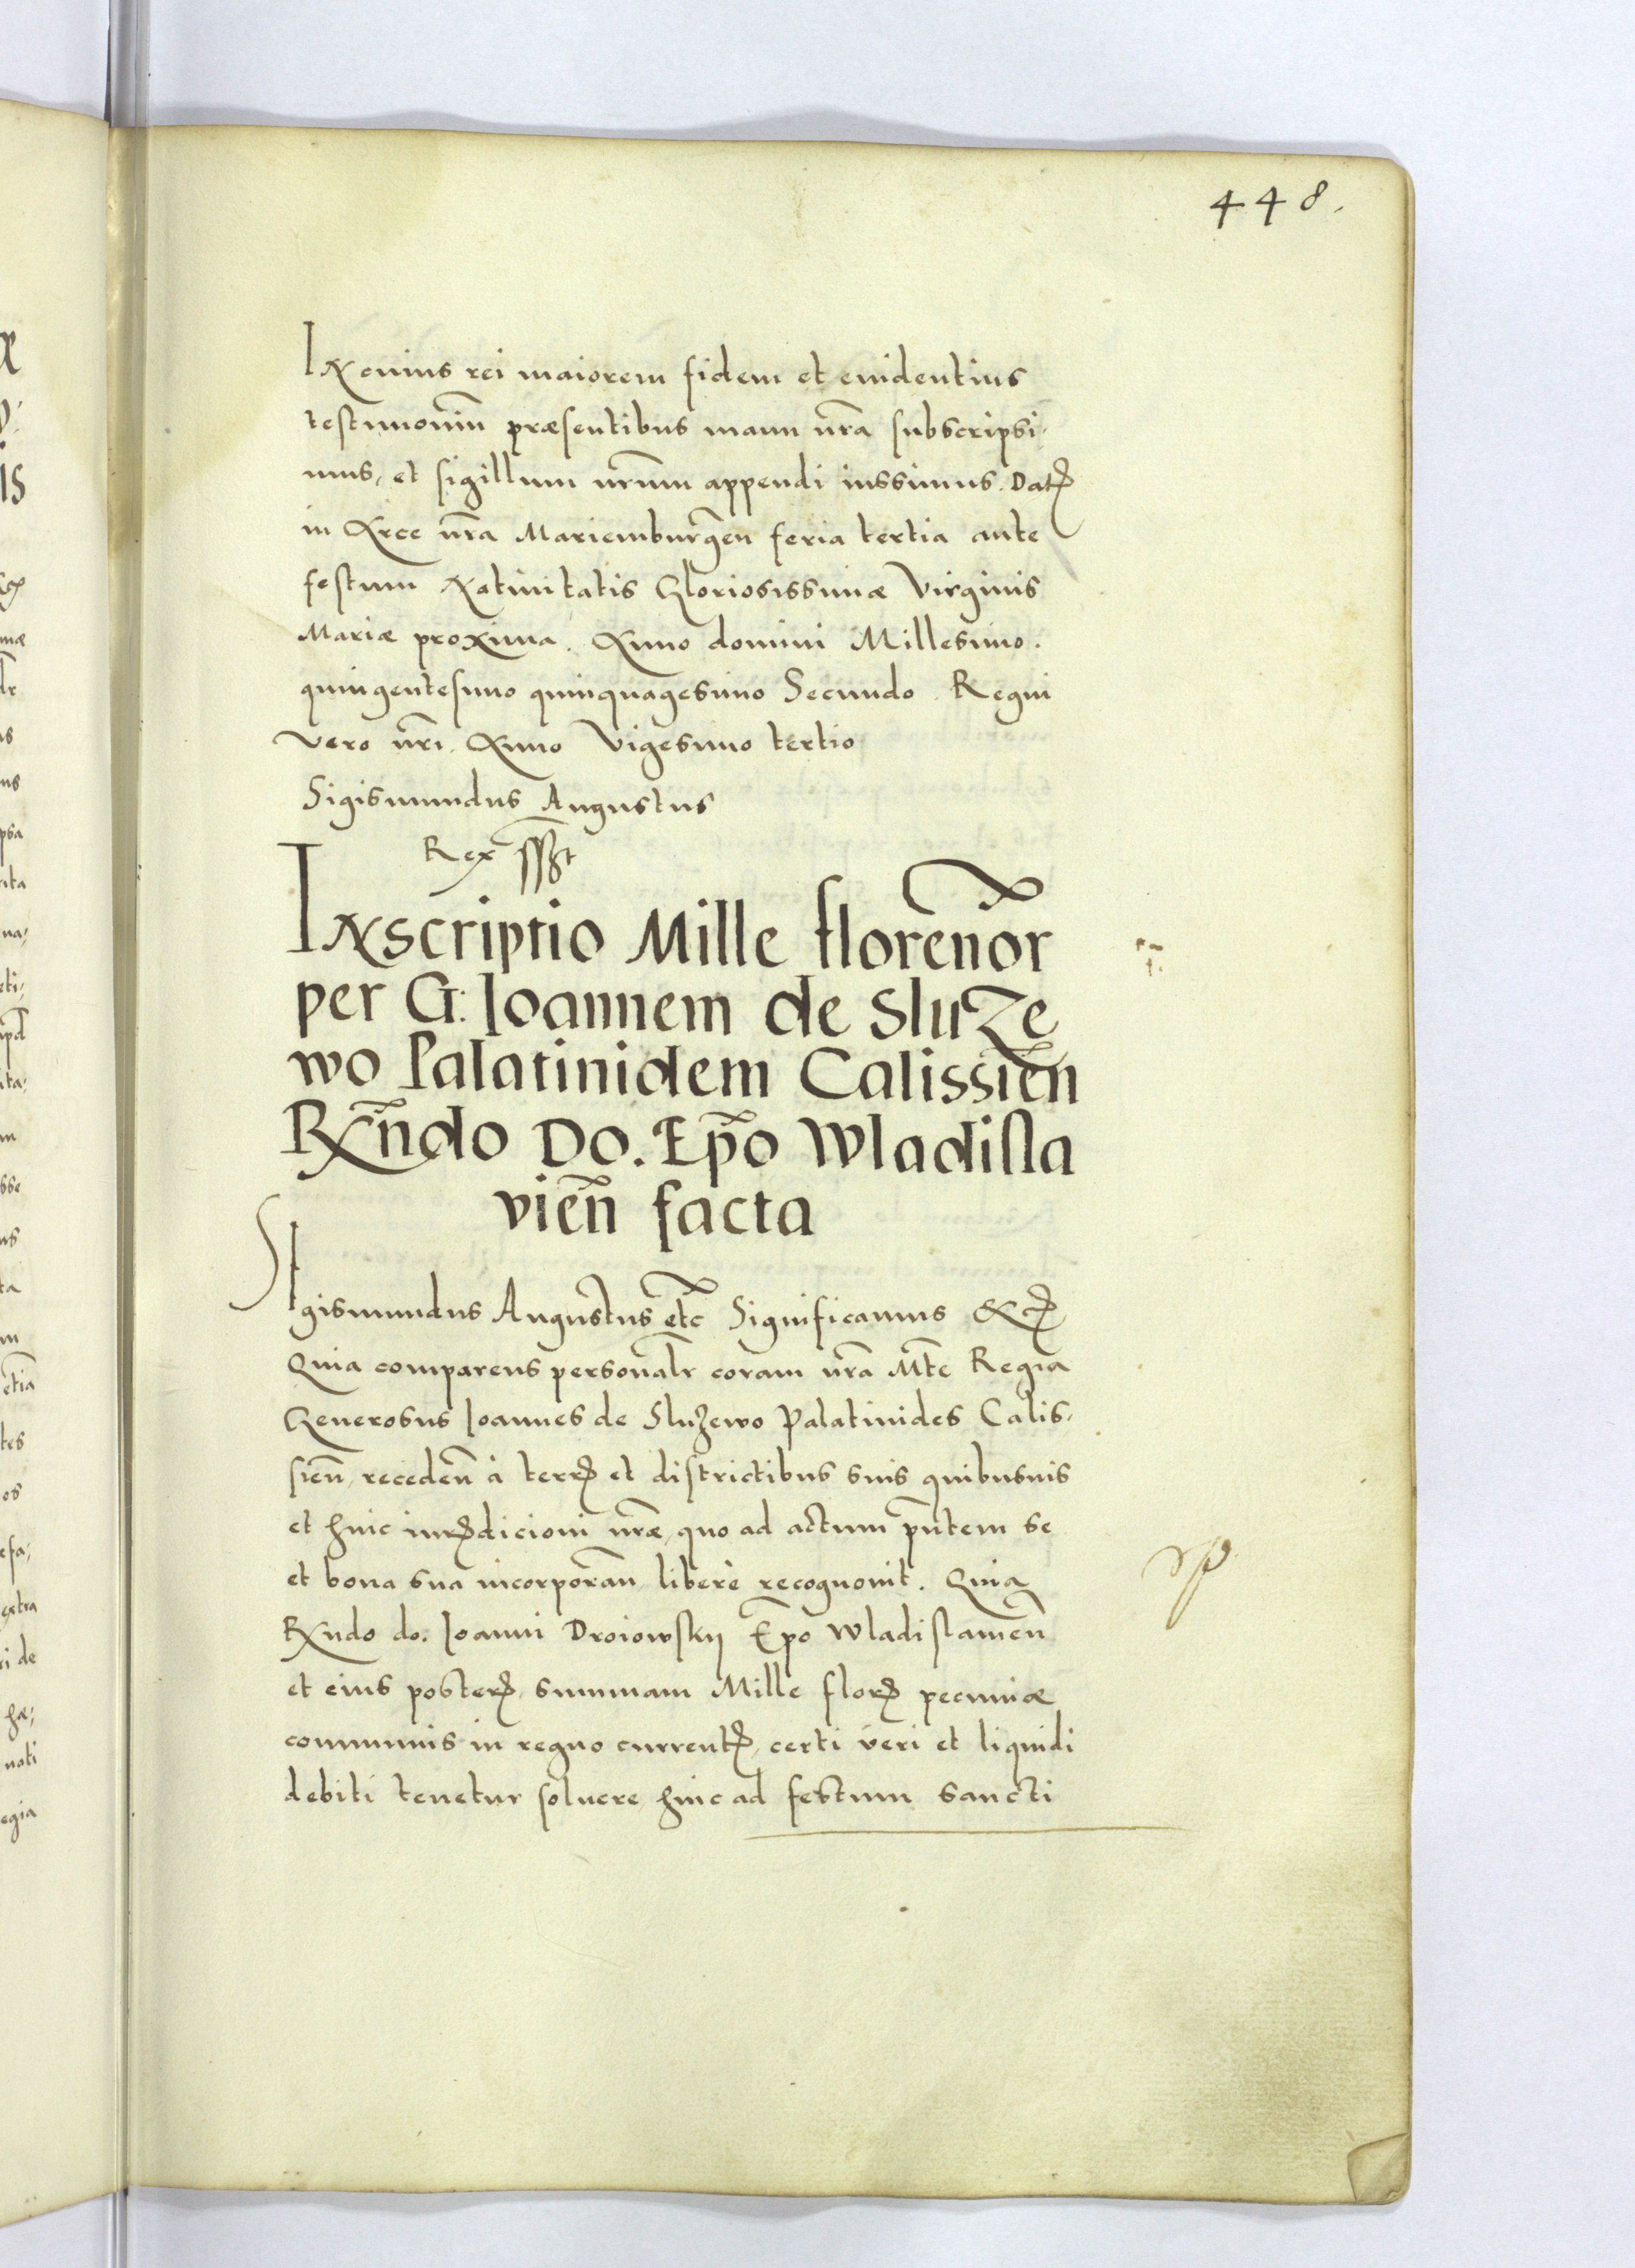 448.
In cuius rei maiorem fidem et euidentius
testimoniu̅ præsentibus manu nr̅a subscripsi-
mus, et sigillum nr̅um appendi iussimus. Datꝭ
in Arce nr̅a Mariemburgen̅ feria tertia ante
festum Natiuitatis Gloriosissimæ Virginis
Mariæ proxima. Anno domini Millesimo.
quingentesimo quinquagesimo Secundo. Regni
vero nr̅i. Anno Vigesimo tertio
Sigismundus Augustus
Rex sszt
Inscriptio Mille florenor̅
per G: Ioannem de Sluze
wo Palatinidem Calissien̅
Rn̅do Do. Ep̅o Wladisla
vien̅ facta
Sigismundus Augustus etc̅ Significamus &cꝭ
Quia comparens personalr̅ coram nr̅a Mt̅e Regia
Generosus Ioannes de Sluzewo Palatinides Calis-
sien̅, receden̅ à terrꝭ et districtibus suis quibusuis
et huic iurꝭdicioni nr̅æ, quo ad actum pn̅tem se
et bona sua incorporan̅, liberè recognouit. Quia
Rn̅do do. Ioanni Droiowskij Ep̅o Wladislauien̅
et eius posterꝭ, summam Mille florꝭ pecuniæ
communis in regno currentꝭ, certi veri et liquidi
debiti tenetur soluere, hinc ad festum Sancti